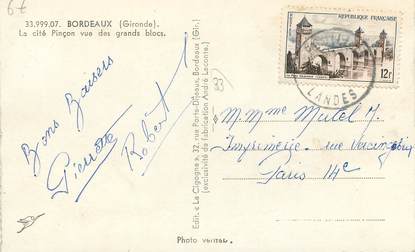 6€
33.999.07. BORDEAUX (Gironde).
La cité Pinçon vue des grands blocs.
Bons Baisers
Pierrette
Robert
Edit. « La Cigogne », 32, rue Porte-Dijeaux, Bordeaux (Gir.)
(exclusivité de fabrication André Leconte.)
33
RÉPUBLIQUE FRANÇAISE
12F
LANDES
M. Mme Mulet M.
Imprimerie rue
Paris 14e
Photo véritable.